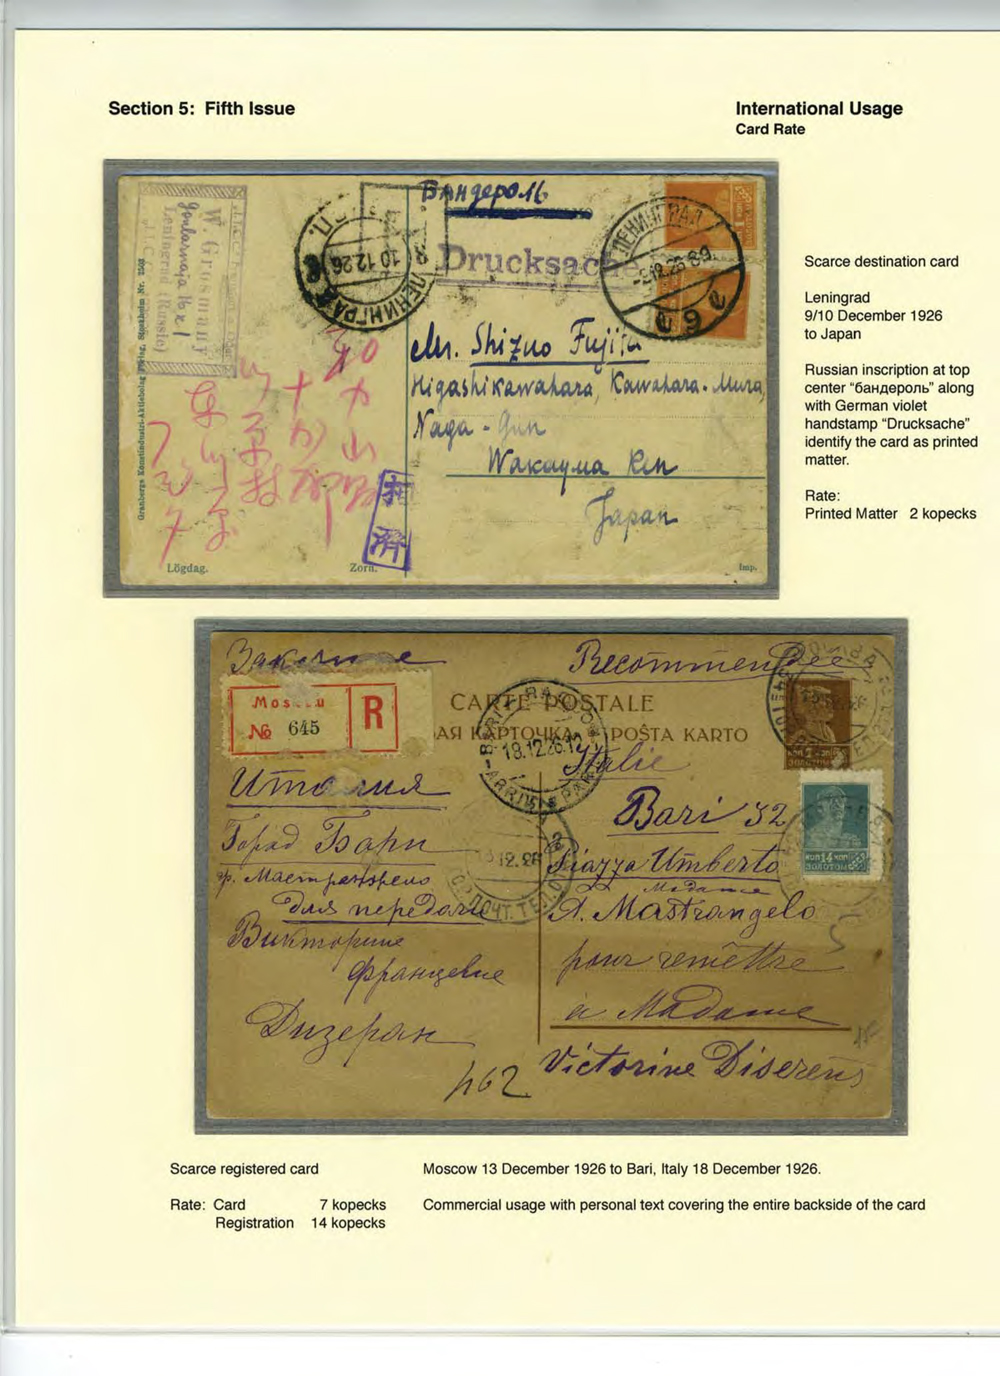 Section 5: Fifth Issue
International Usage
Card Rate
Бандероль
Drucksache
W. Grosmann
Leningrad (Russie)
ЛЕНИНГРАД
10 12 26
ЛЕНИНГРАД
Mr. Shizuo Fujita
Higashikawahara, Kawahara-Mura
Naga-Gun
Wakayma Ken
Japan
Granbergs Konstindustri-Aktiebolag Förlag, Stockholm Nr. 2503
Lögdag.
Zorn.
Imp.
Scarce destination card
Leningrad
9/10 December 1926
to Japan
Russian inscription at top
center “бандероль” along
with German violet
handstamp “Drucksache”
identify the card as printed
matter.
Rate:
Printed Matter 2 kopecks
Заказное
Recommendée
R
№ 645
CARTE POSTALE
КАРТОЧКА
POŜTA KARTO
BARI
18.12.26.12
Италия
Город Бари
для передачи
Викторине
Францевне
Дизеран
Italie
Bari 32
Piazza Umberto
Madame
A. Mastrangelo
pour remettre
à Madame
Victorine Diserens
462
КОП 14 КОП
ЗОЛОТОМ
Scarce registered card
Moscow 13 December 1926 to Bari, Italy 18 December 1926.
Rate: Card 7 kopecks
Registration 14 kopecks
Commercial usage with personal text covering the entire backside of the card